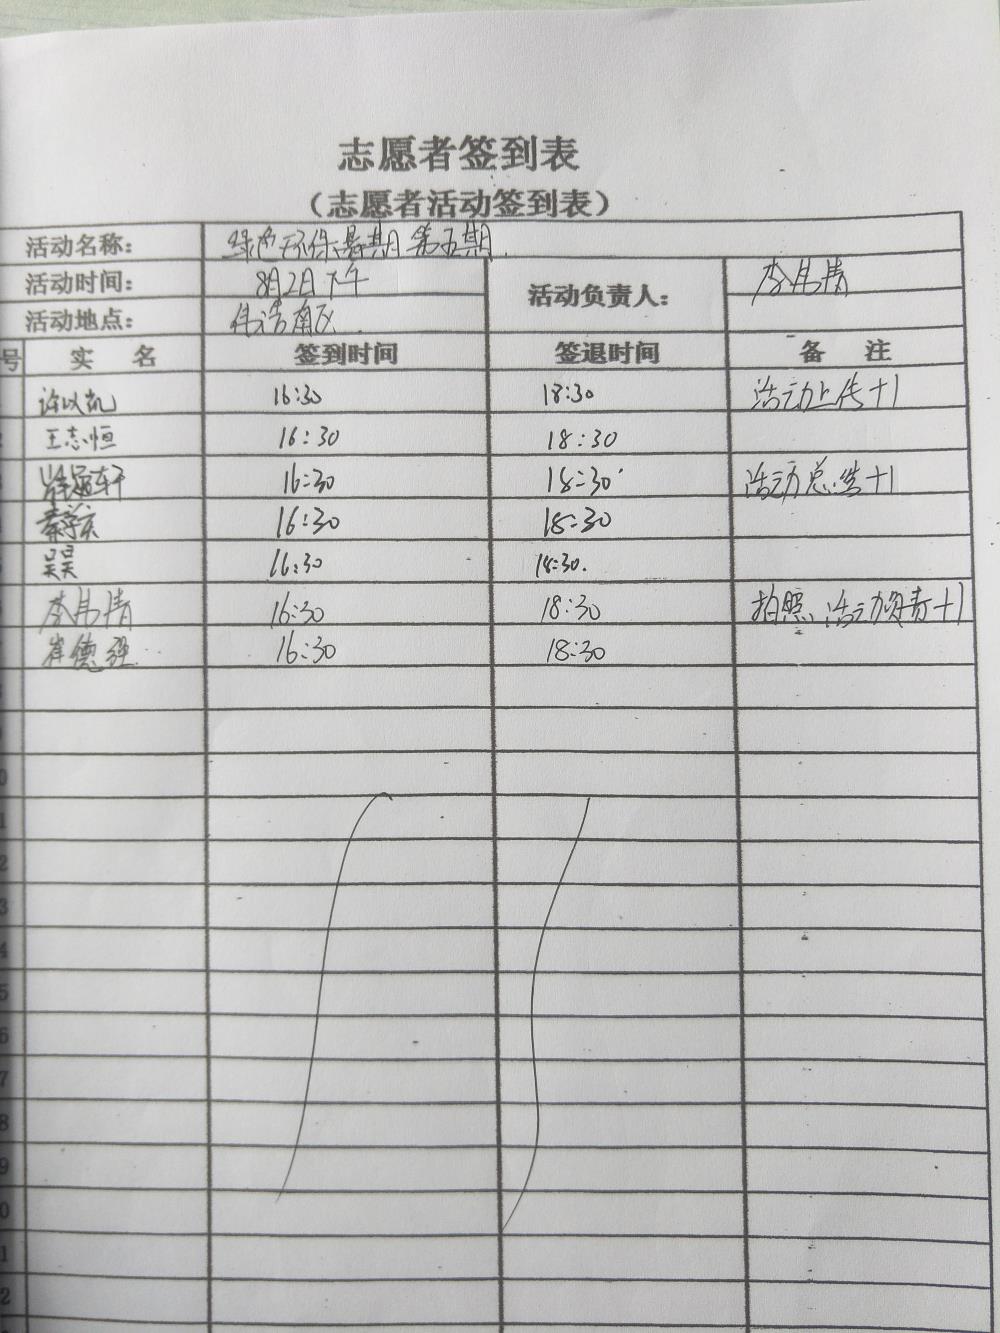 志愿者签到表
（志愿者活动签到表）
活动名称： 绿色环保暑期第五期
活动时间： 8月2日下午 活动负责人： 李伟倩
活动地点： 伟浩南区
号 实 名 签到时间 签退时间 备 注
许以凯 16:30 18:30 活动上传+1
王志恒 16:30 18:30
16:30 18:30 活动总结+1
16:30 18:30
吴昊 16:30 18:30.
李伟倩 16:30 18:30 拍照、活动负责+1
崔德 16:30 18:30
0
1
2
3
4
5
6
7
8
9
0
1
2